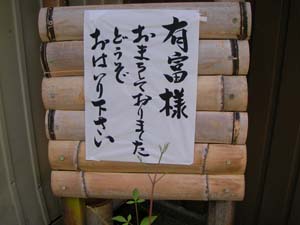 有富様
おまちしておりました
どうぞ
おはいり下さい